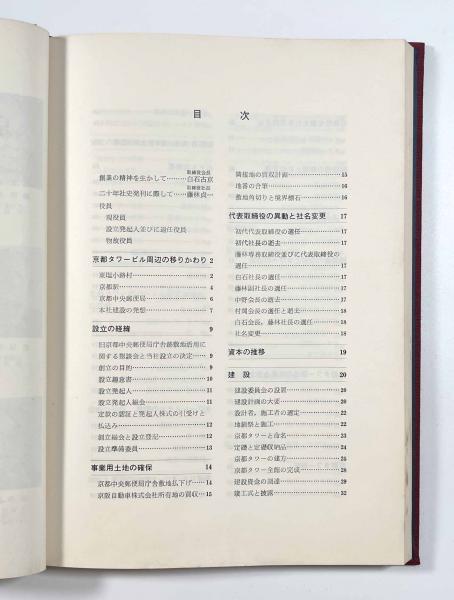 目次
取締役会長
創業の精神を生かして……白石古京
取締役社長
二十年社史発刊に際して…藤林貞一
役員
現役員
設立発起人並びに退任役員
物故役員
京都タワービル周辺の移りかわり 2
東塩小路村……2
京都駅……4
京都中央郵便局……6
本社建設の発想……7
設立の経緯 9
旧京都中央郵便局庁舎跡敷地活用に
関する懇談会と当社設立の決定…9
創立の目的……9
設立趣意書……11
設立発起人……11
設立発起人総会……11
定款の認証と発起人株式の引受けと
払込み……12
創立総会と設立登記……12
設立準備委員……13
事業用土地の確保 14
京都中央郵便局庁舎敷地払下げ……14
京阪自動車株式会社所有地の買収…15
隣接地の買収計画……15
地番の合筆……16
敷地的切りと境界標石……16
代表取締役の異動と社名変更 17
初代代表取締役の選任……17
初代社長の逝去……17
藤林専務取締役並びに代表取締役の
選任……17
白石社長の選任……17
藤林副社長の選任……17
中野会長の逝去……17
村岡会長の選任と逝去……18
白石会長，藤林社長の選任……18
社名変更……18
資本の推移 19
建設 20
建設委員会の設置……20
建設計画の大要……20
設計者，施工者の選定……22
地鎮祭と施工……22
京都タワーと命名……23
定礎と定礎収納品……24
京都タワーの建方……26
京都タワー全館の完成……28
建設資金の調達……29
竣工式と披露……32